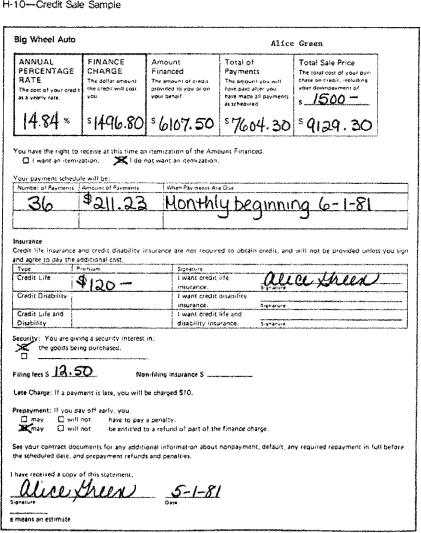 H-10—Credit Sale Sample
Big Wheel Auto
Alice Green
ANNUAL PERCENTAGE RATE
The cost of your credit as a yearly rate.
14.84 %
FINANCE CHARGE
The dollar amount the credit will cost you.
$1496.80
Amount Financed
The amount of credit provided to you or on your behalf.
$6107.50
Total of Payments
The amount you will have paid after you have made all payments as scheduled.
$7604.30
Total Sale Price
The total cost of your purchase on credit, including your downpayment of
$ 1500 —
$9129.30
You have the right to receive at this time an itemization of the Amount Financed.
☐ I want an itemization. ☒ I do not want an itemization.
Your payment schedule will be:
Number of Payments Amount of Payments When Payments Are Due
36 $211.23 Monthly beginning 6-1-81
Insurance
Credit life insurance and credit disability insurance are not required to obtain credit, and will not be provided unless you sign
and agree to pay the additional cost.
Type Premium Signature
Credit Life $120 — I want credit life insurance. Alice Green
Signature
Credit Disability I want credit disability insurance.
Signature
Credit Life and Disability I want credit life and disability insurance.
Signature
Security: You are giving a security interest in:
☒ the goods being purchased.
☐
Filing fees $ 12.50 Non-filing insurance $
Late Charge: If a payment is late, you will be charged $10.
Prepayment: If you pay off early, you
☐ may ☐ will not have to pay a penalty.
☒ may ☐ will not be entitled to a refund of part of the finance charge.
See your contract documents for any additional information about nonpayment, default, any required repayment in full before
the scheduled date, and prepayment refunds and penalties.
I have received a copy of this statement.
Alice Green 5-1-81
Signature Date
e means an estimate